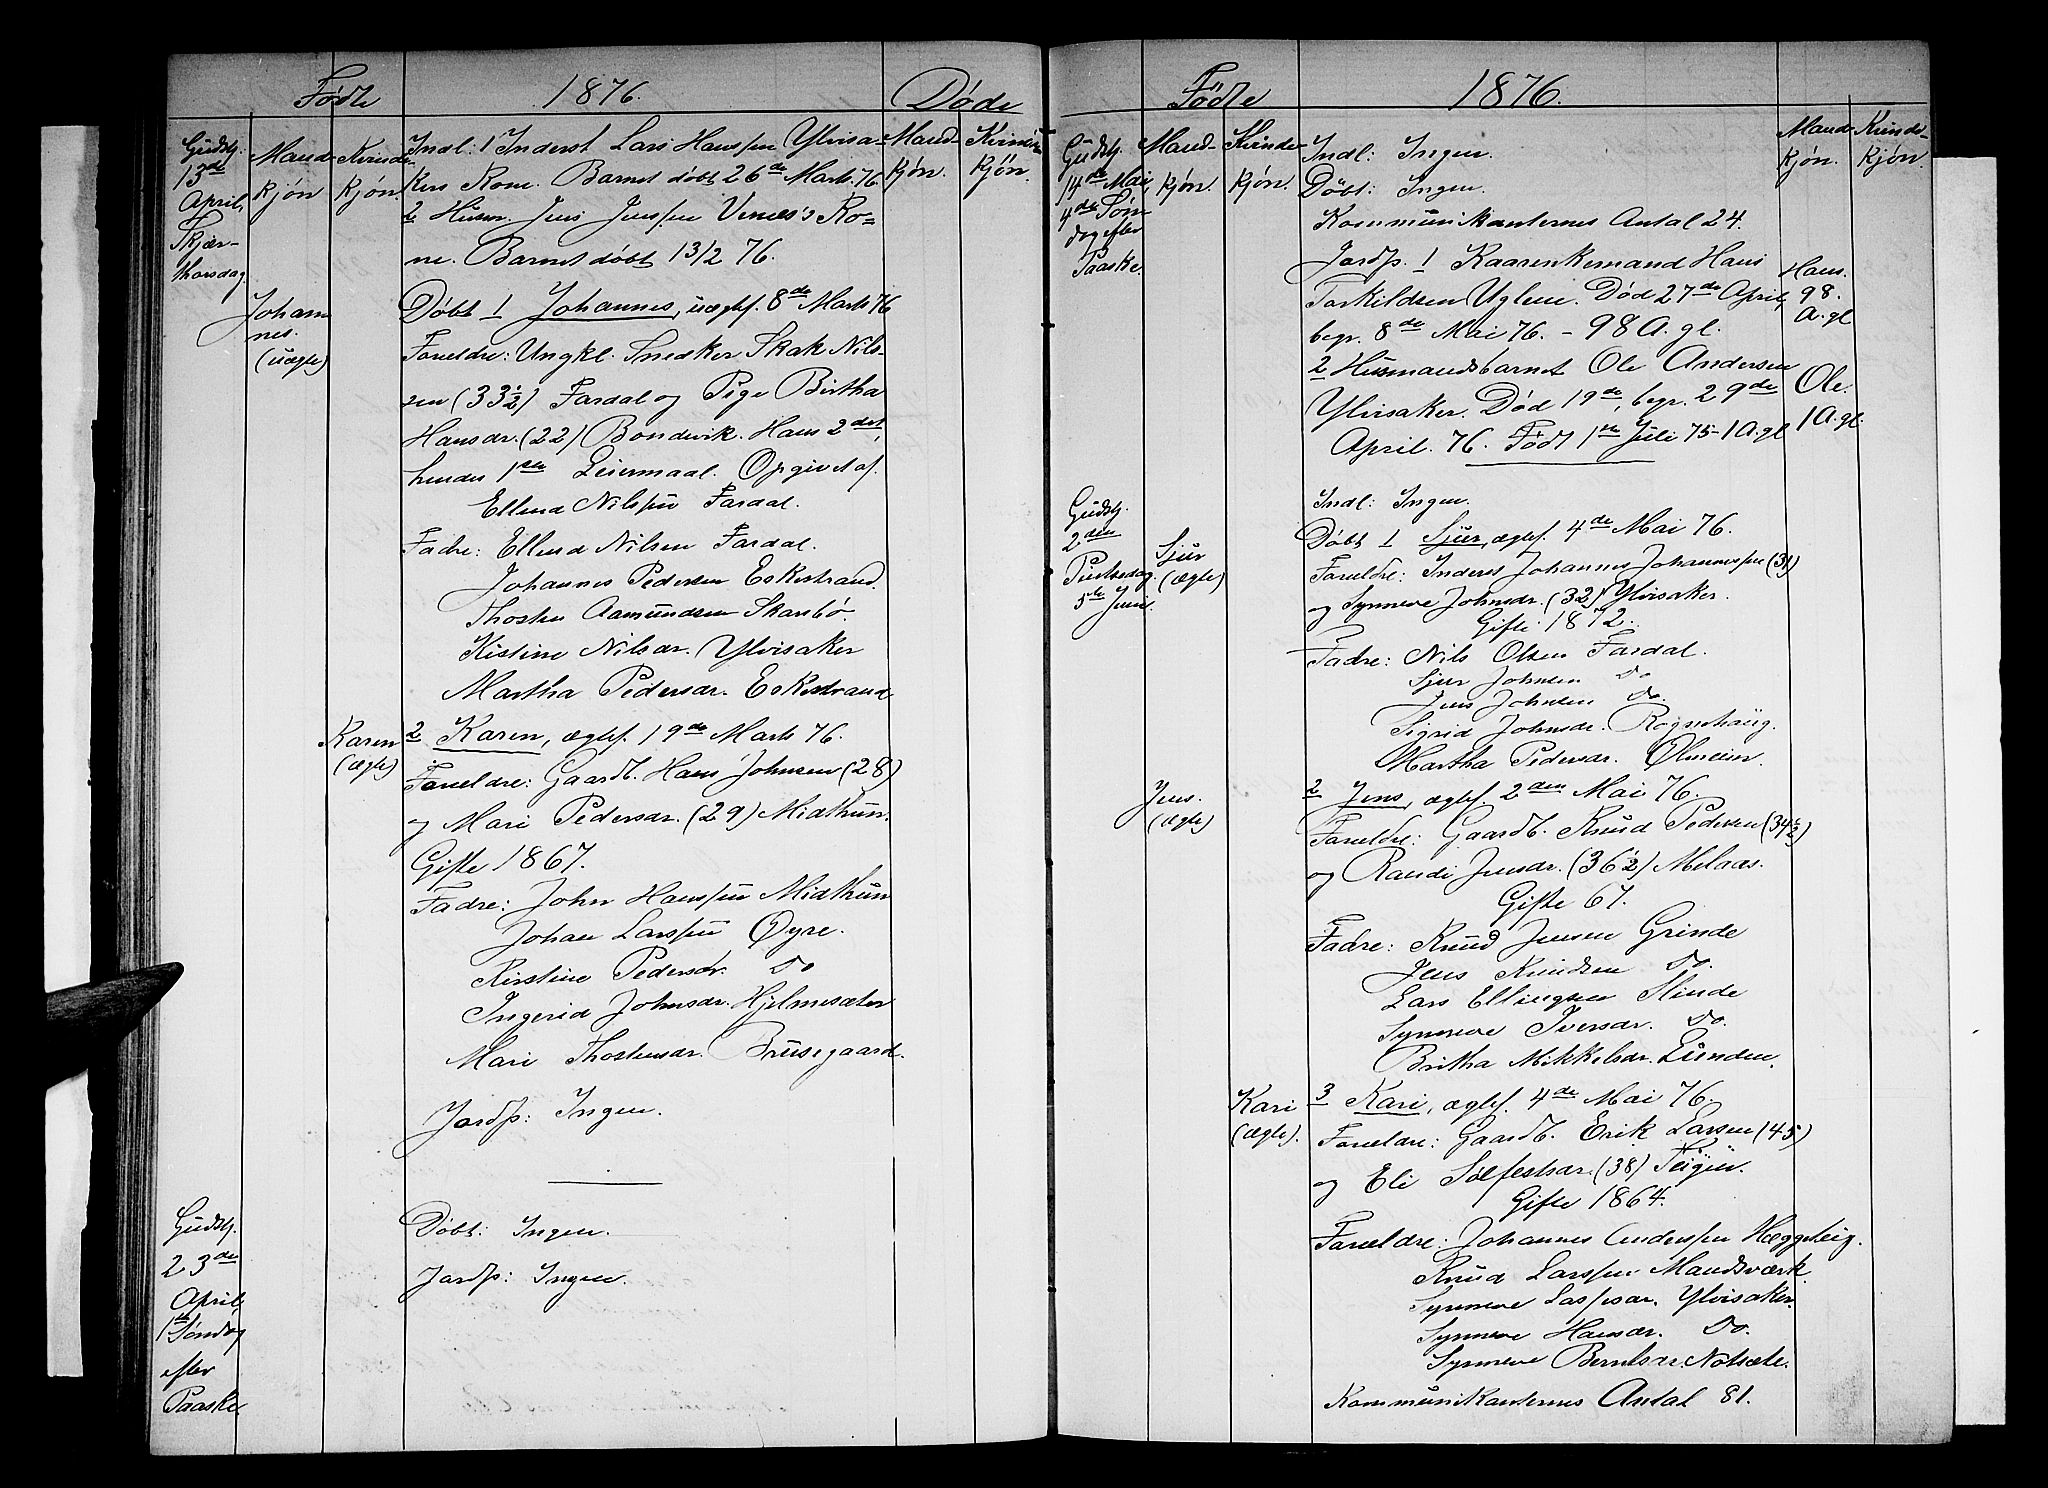 Fødte
1876.
Døde
Gudstj.
13de
April,
Skjær-
thorsdag.
Mand-
kjøn
Kvinde-
kjøn.
Indl: 1 Inderst Lars Hanssen Ylvisa-
kers Kone. Barnet døbt 26de Marts 76.
2 Husm. Jens Jenssen Venæs's Ko-
ne. Barnet døbt 13/2 76.
Mand-
kjøn.
Kvinde-
kjøn.
Johan
nes.
(uægte)
Døbt 1 Johannes, uægtef. 8de Marts 76
Forældre: Ungkl. Snedker Skak Nils-
sen (33½) Fardal og Pige Birtha
Hansdr. (22) Bondevik. Hans 2det,
hendes 1ste Leiermaal. Opgivet af
Ellend Nilssen Fardal.
Fadre: Ellend Nilsen Fardal.
Johannes Pedersen Eskestrand.
Thosten Aamundsen Skarsbø.
Kistine Nilsdr. Ylvisaker
Martha Pedersdr. Eskestrand
Karen
(ægte)
2 Karen, ægtef. 19de Marts 76.
Forældre: Gaardb. Hans Johnsen (28)
og Mari Pedersdr. (29) Midthun.
Gifte 1867.
Fadre: John Hanssen Midthun
Johan Larssen Øyre.
Kirstine Pedersdr. Do
Ingerid Johnsdr. Hjelmesæter
Mari Thostensdr. Brusegaard.
Jordp: Ingen.
Gudstj.
23de
April,
1ste Søndag
efter
Paaske.
Døbt: Ingen.
Jordp: Ingen.
Fødte
1876.
Gudstj.
14de Mai,
4de Søn
dag efter
Paaske.
Mand-
kjøn.
Kvinde-
kjøn.
Indl: Ingen.
Døbt: Ingen.
Kommunikanternes Antal 24.
Jordp. 1 Kaarenkemand Hans
Torkildsen Uglene. Død 27de April,
begr. 8de Mai 76. - 98 A. gl.
2 Husmandsbarnet Ole Andersen
Ylvisaker. Død 19de, begr. 29de
April. 76. Født 1ste Juli 75 - 1 A. gl
Mand-
kjøn.
Kvinde-
kjøn.
Hans.
98.
A. gl
Ole.
1 A. gl.
Gudstj.
2den
Pintsedag.
5te Juni.
Sjur
(ægte)
Indl: Ingen.
Døbt 1 Sjur, ægtef. 4de Mai 76.
Forældre: Inderst Johannes Johannessen (31)
og Synneve Johnsdr. (32) Ylvisaker.
Gifte 1872.
Fadre: Nils Olsen Fardal.
Sjur Johnsen Do
Jens Johnsen Do.
Sigrid Johnsdr. Rognehaug.
Martha Pedersdr. Ølmeim.
Jens.
(ægte)
2 Jens, ægtef. 2den Mai 76.
Forældre: Gaardb. Knud Pedersen (34½)
og Randi Jensdr. (36½) Melaas.
Gifte 67.
Fadre: Knud Jensen Grinde
Jens Knudsen Do.
Lars Ellingsen Slinde
Synneve Iversdr. Do.
Britha Mikkelsdr. Lunden.
Kari
(ægte).
3 Kari, ægtef. 4de Mai 76.
Forældre: Gaardb. Erik Larsen (45)
og Eli Sølfestsdr. (38) Teigen.
Gifte 1864.
Forældre: Johannes Anderssen Hæggeteig.
Knud Larssen Mandsværk
Synneve Lassesdr. Ylvisaker.
Synneve Hansdr. Do.
Synneve Berntsdr. Notsæte.
Kommunikanternes Antal 81.